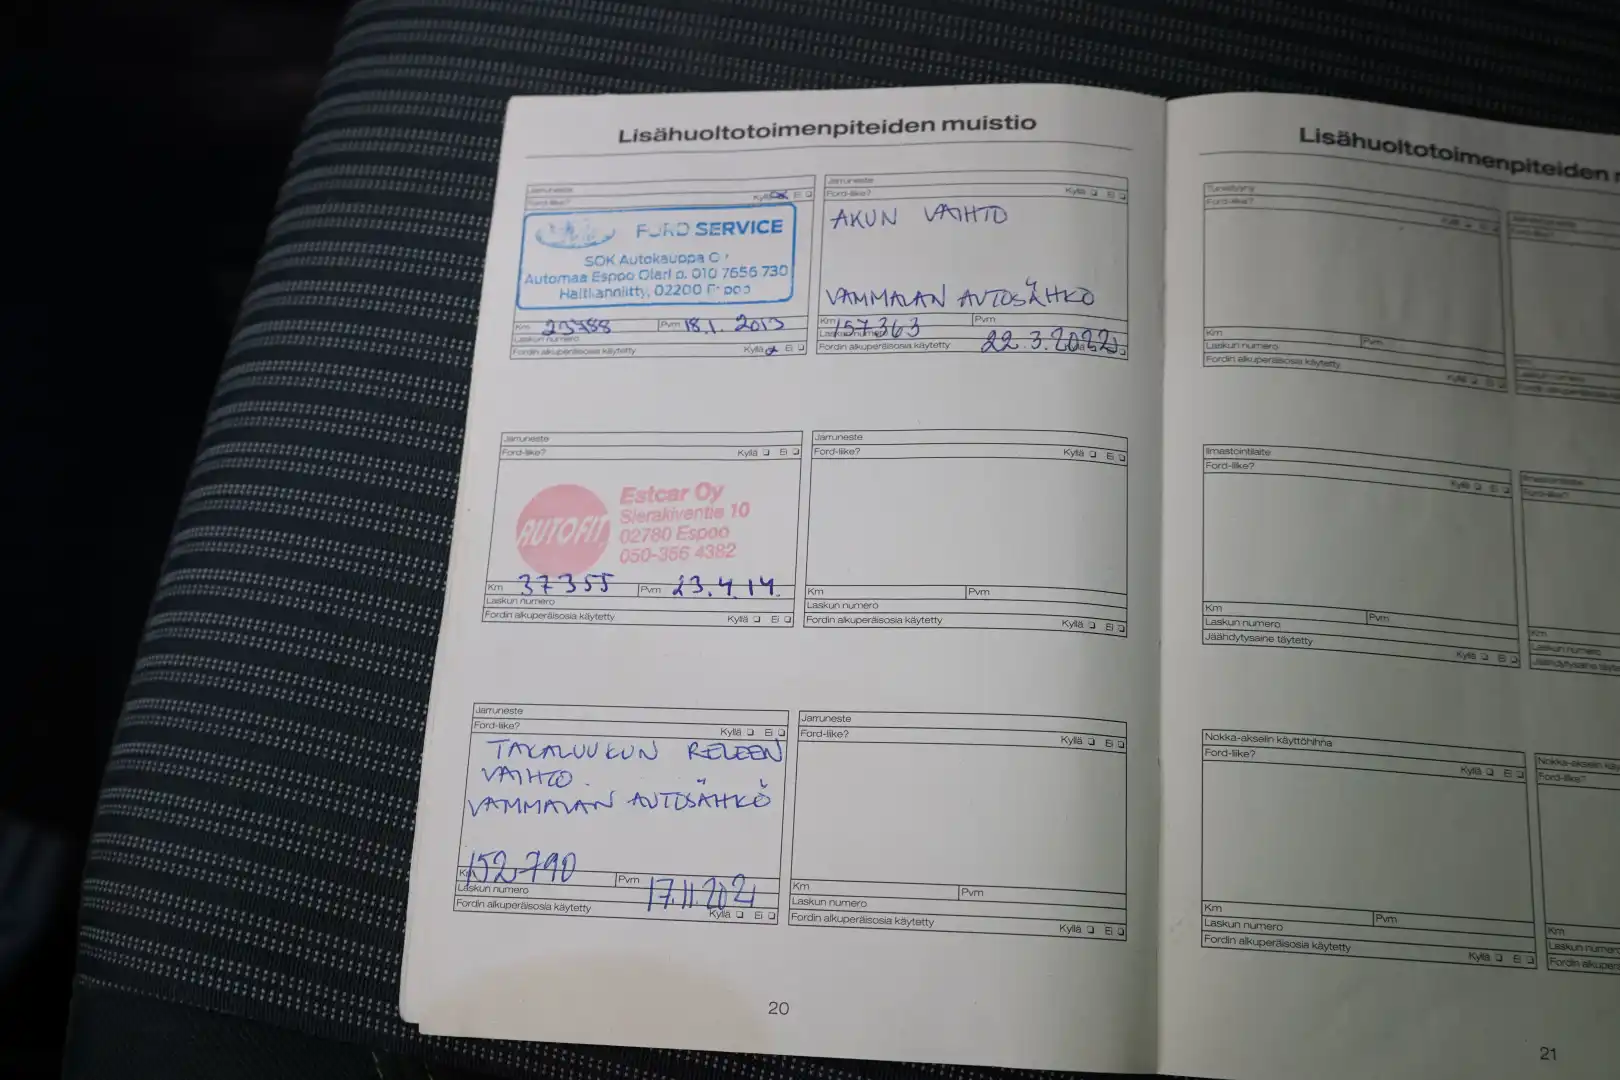 Lisähuoltotoimenpiteiden muistio
Jarruneste
Ford-liike?
Kyllä Ei
FORD SERVICE
SOK Autokauppa
Automaa Espoo Olari p. 010 7656 730
Haltilanniitty, 02200 Espoo
Km 23788 Pvm 18.1. 2013
Laskun numero
Fordin alkuperäisosia käytetty Kyllä Ei
Jarruneste
Ford-liike? Kyllä Ei
AKUN VAIHTO
VAMMALAN AUTOSÄHKÖ
Km 157363 Pvm
Laskun numero 22.3.2022
Fordin alkuperäisosia käytetty
Jarruneste
Ford-liike? Kyllä Ei
AUTOFIT
Estcar Oy
Sierakiventie 10
02780 Espoo
050-356 4382
Km 37355 Pvm 23.4.14.
Laskun numero
Fordin alkuperäisosia käytetty Kyllä Ei
Jarruneste
Ford-liike? Kyllä Ei
Km Pvm
Laskun numero
Fordin alkuperäisosia käytetty Kyllä Ei
Jarruneste
Ford-liike? Kyllä Ei
TAKALUUKUN RELEEN
VAIHTO.
VAMMALAN AUTOSÄHKÖ
152790
Km Pvm 17.11.2021
Laskun numero
Fordin alkuperäisosia käytetty Kyllä Ei
Jarruneste
Ford-liike? Kyllä Ei
Km Pvm
Laskun numero
Fordin alkuperäisosia käytetty Kyllä Ei
20
Lisähuoltotoimenpiteiden
Ford-liike?
Kyllä Ei
Km Pvm
Laskun numero
Fordin alkuperäisosia käytetty
Kyllä Ei
Ilmastointilaite
Ford-liike?
Kyllä Ei
Km Pvm
Laskun numero
Jäähdytysaine täytetty
Kyllä Ei
Km
Laskun numero
Nokka-akselin käyttöhihna
Ford-liike?
Kyllä Ei
Km Pvm
Laskun numero
Fordin alkuperäisosia käytetty
Kyllä Ei
Nokka-akselin
Ford-liike?
Km
Laskun numero
Fordin
21